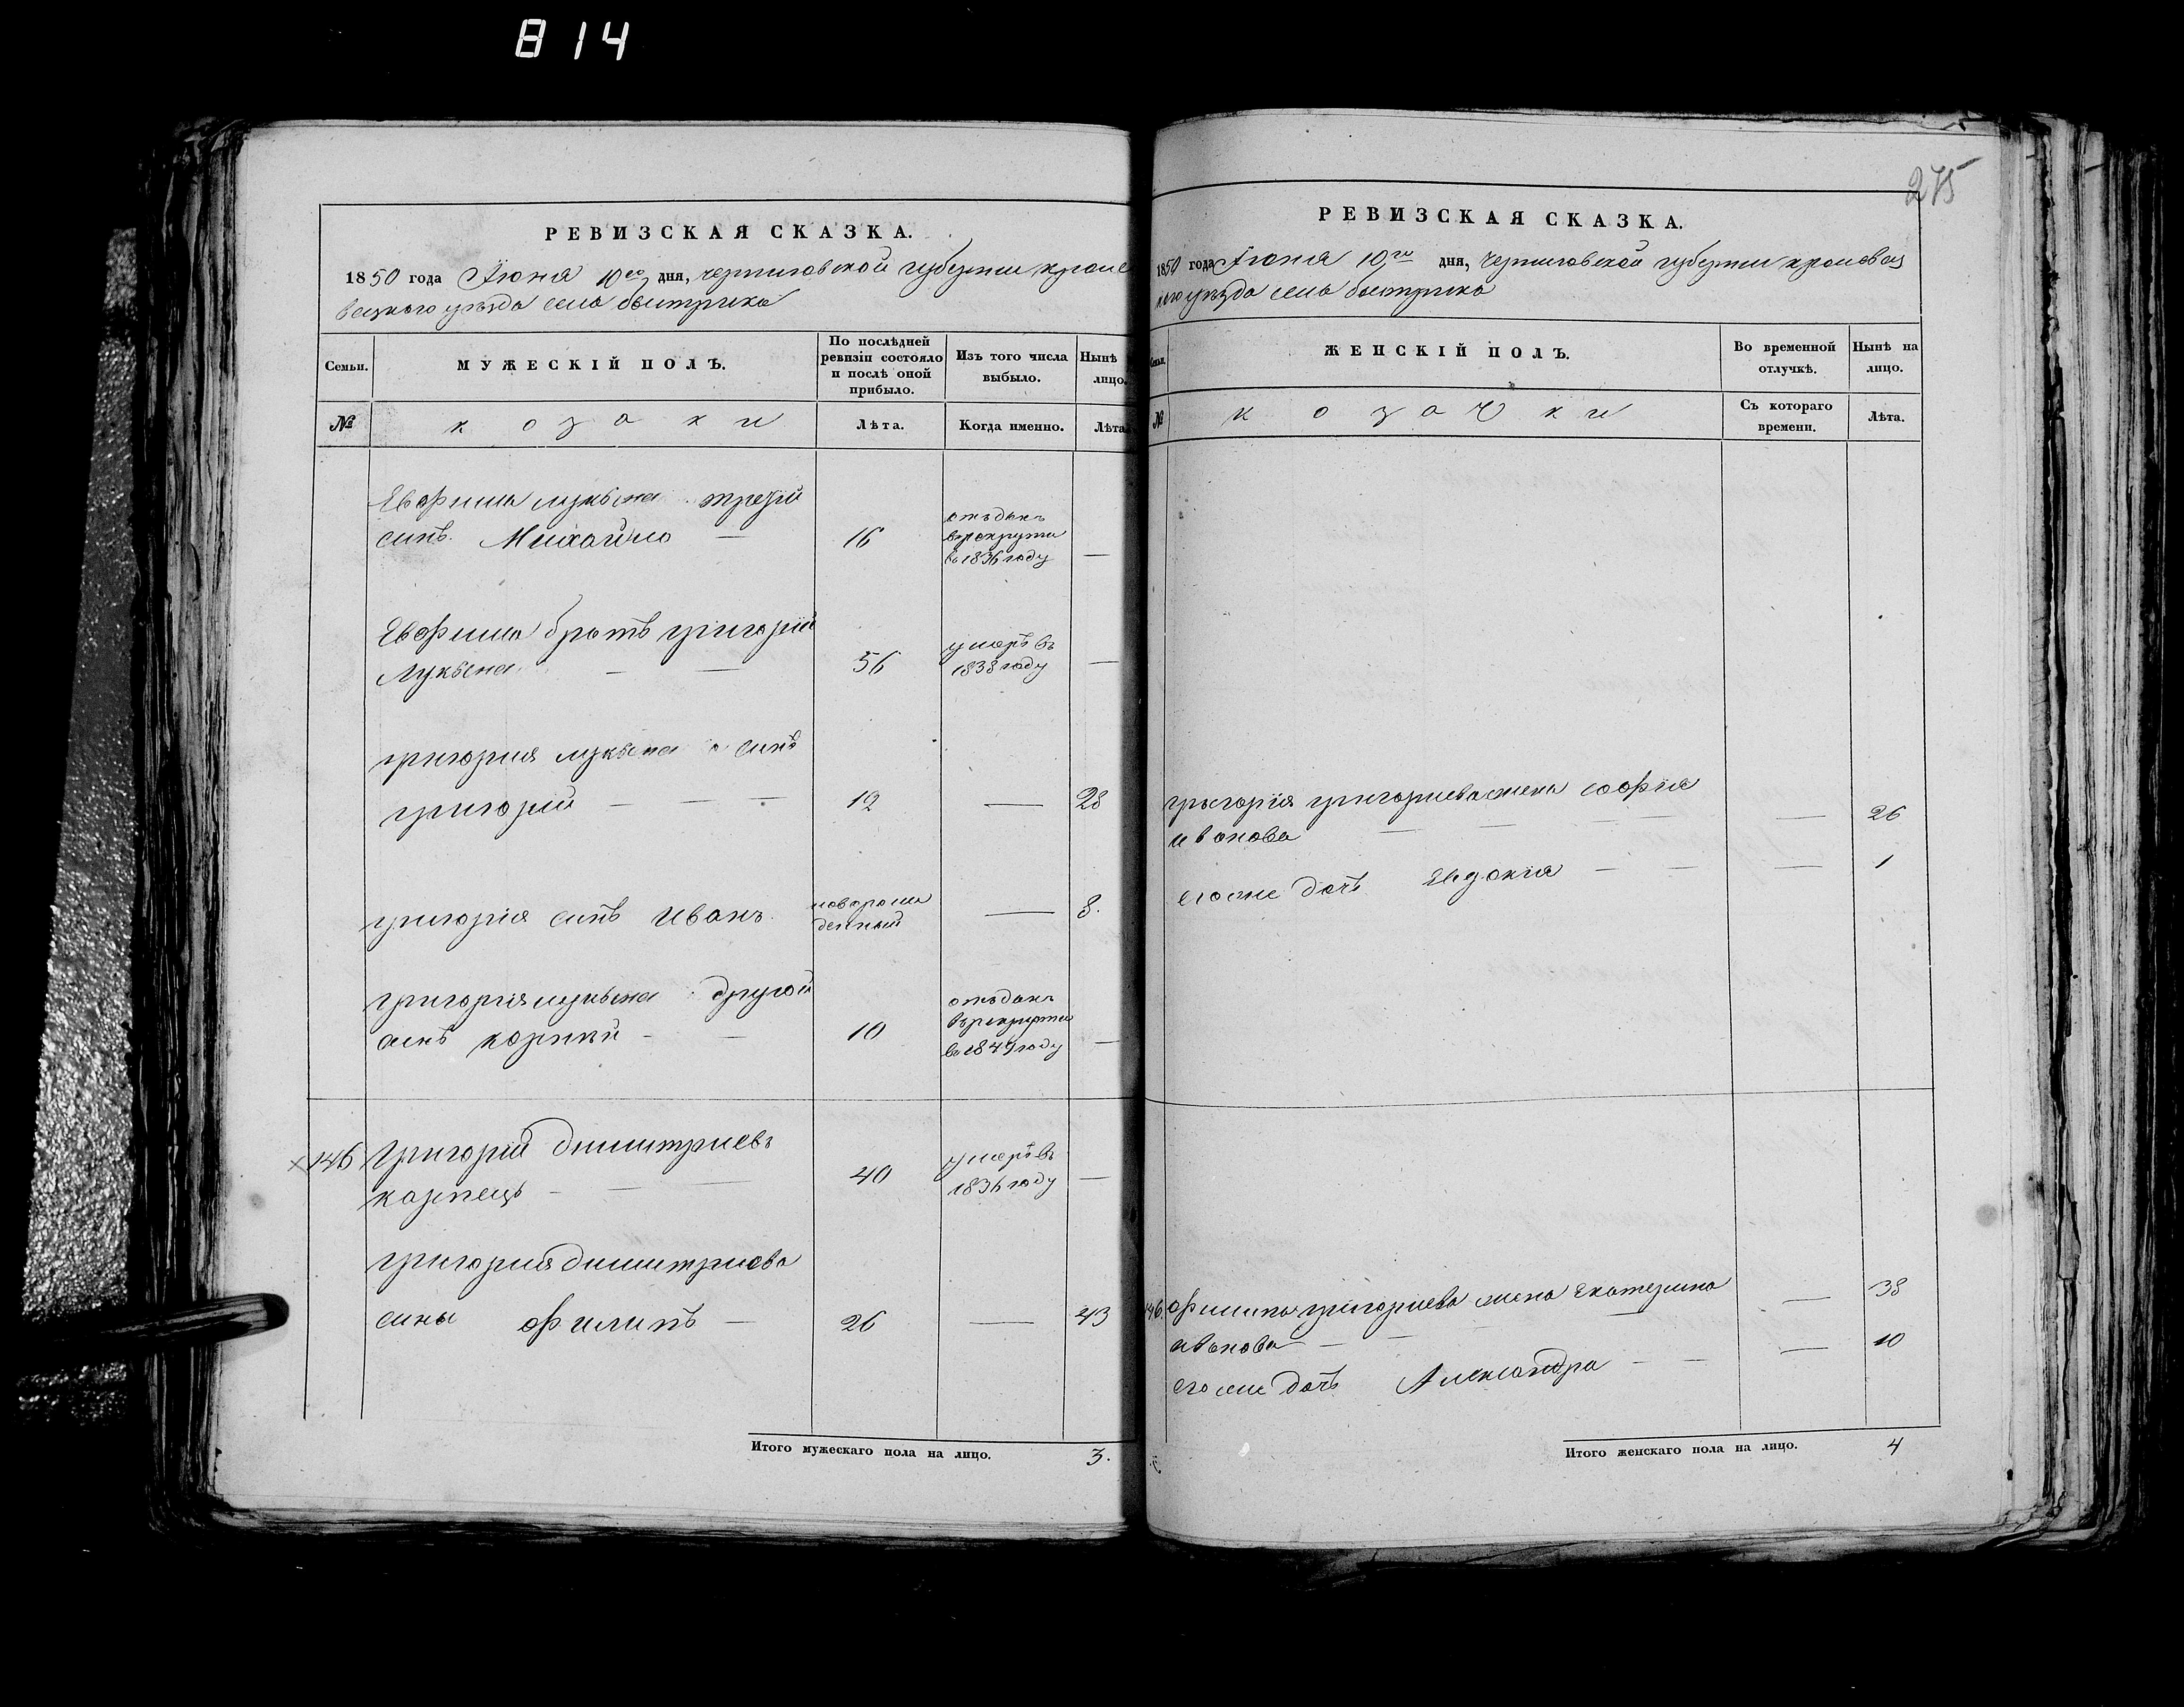 814
РЕВИЗСКАЯ СКАЗКА.
1850 года Іюня 10го дня, черниговской губернии кроле
вецкого уѣзда села быстрика
Семьи.
МУЖЕСКІЙ ПОЛЪ.
По послѣдней
ревизіи состояло
и послѣ оной
прибыло.
Изъ того числа
выбыло.
Нынѣ
лицо.
№
козаки
Лѣта.
Когда именно.
Лѣта
Евфима лукьяна третій
синъ Михайло — 16
отъданъ
врекруты
въ 1836 году —
Евфима братъ григорій
Лукьяна — — 56
умеръ въ
1838 году —
григория лукьяна синъ
григорий — — — 12 — 28
григорія синъ иванъ
новорож
денный — 8.
григорія лукьяна другой
синъ корнѣй — — 10
отъданъ
врекруты
въ 1849 году —
146 Григорій димитриевъ
карпецъ — — — 40
умеръ въ
1836 году —
григория димитриева
сины филипъ — 26 — 43
Итого мужескаго пола на лицо. 3.
275
РЕВИЗСКАЯ СКАЗКА.
1850 года Іюня 10го дня, Черниговской губернии кролевец
кого уѣзда села быстрика
Семьи.
ЖЕНСКІЙ ПОЛЪ.
Во временной
отлучкѣ.
Нынѣ на
лицо.
№
козачки
Съ котораго
времени.
Лѣта.
григорія григориева жена софия
иванова — — — — — 26
егоже дочь Евдокія — — — 1
146 филипа григориева жена Екатерина — 38
иванова — — —
егоже дочь Александра — — — 10
Итого женскаго пола на лицо. 4